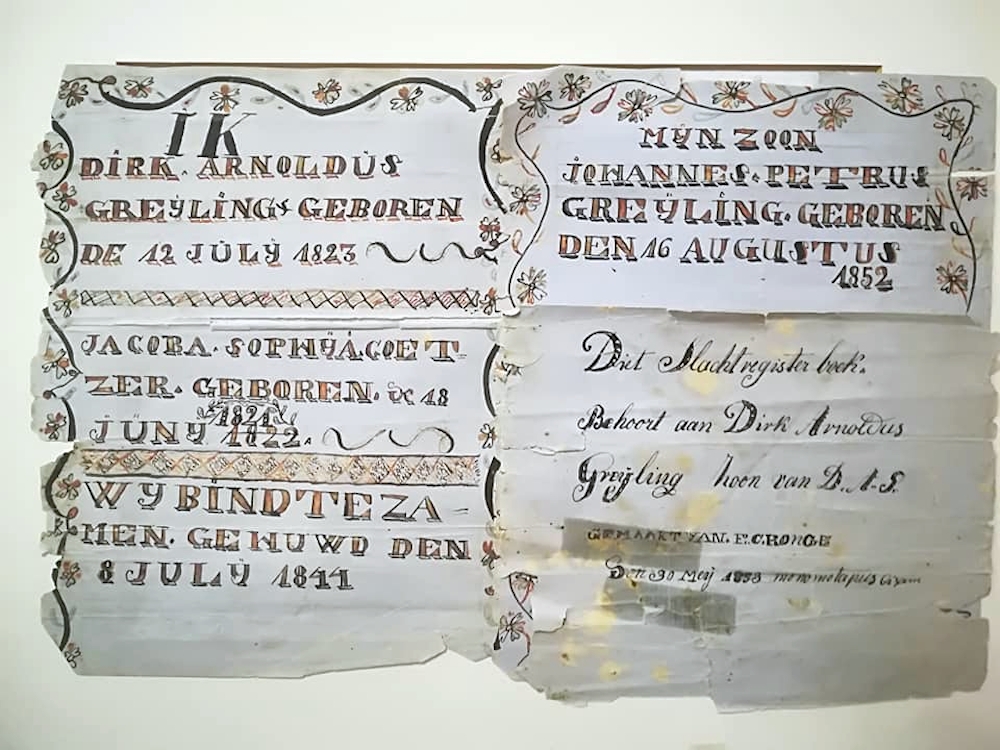 IK
DIRK. ARNOLDUS
GREŸLING GEBOREN
DE 12 JULŸ 1823
JACOBA. SOPHŸA. COET
ZER. GEBOREN. DE 18
1821
JUNŸ 1822.
WŸ BIND TE ZA-
MEN. GEHUWD DEN
8 JULŸ 1841
MŸN ZOON
JOHANNES. PETRUS
GREŸLING. GEBOREN
DEN 16 AUGUSTUS
1852
Diet Slachtregister boek.
Behoort aan Dirk Arnoldus
Greÿling hoon van D.A.G.
GEMAAKT VAN. P.CRONGE
Den 30 Meÿ 1853